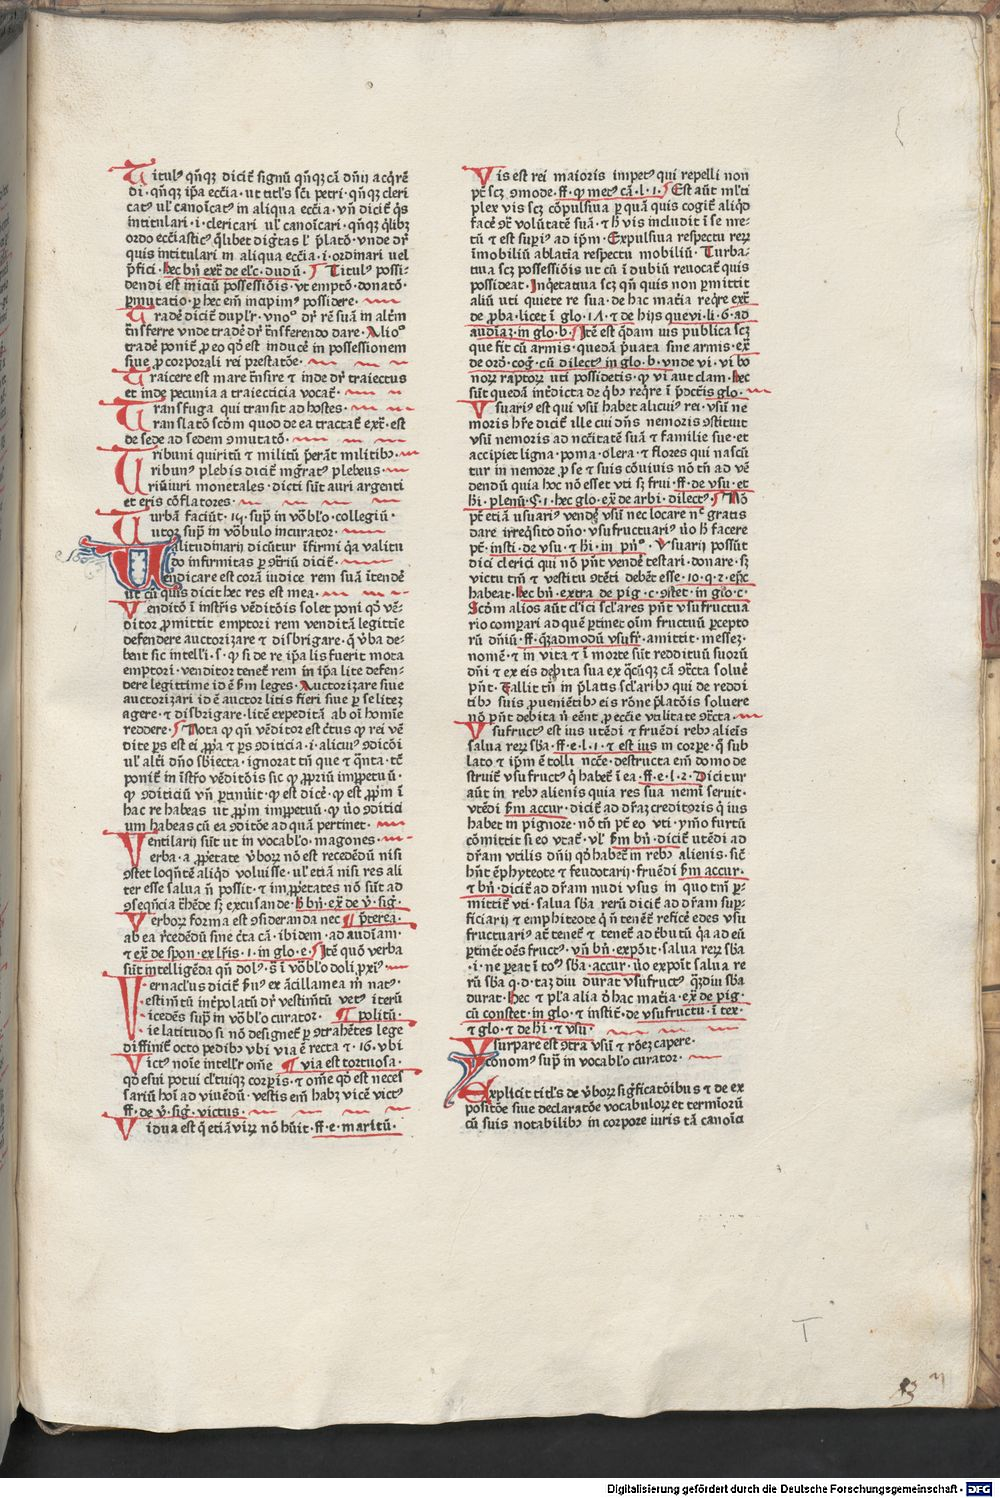 Titulꝰ qn̄qꝫ dicit̉ signū qn̄qꝫ cā dn̄ii acq̄rē
di · qn̄qꝫ ip̄a eccīa · ut titl̉s sc̄i petri · qn̄qꝫ cleri
catꝰ ul̉ canoīcatꝰ in aliqua eccīa · vn̄ dicit̉ q̄s
intitulari · i · clericari ul̉ canoīcari · qn̄qꝫ q̄libꝫ
ordo eccīasticꝰ q̄libet dig̅tas l̉ p̄latō · vnde dr̄
quis intitulari in aliqua eccīa · i · ordinari uel
p̄fici · hec bn̄ ext̉ de el̉c · dudū · Titulꝰ possi-
dendi est iniciū possessiōis · vt emptō · donatō ·
ꝑmutatio · ꝑ hec em̄ incipimꝰ possidere ·
Tradē dicit̉ duplr̄ · vnoº dr̄ rē suā in alem̄
tn̄sferre vnde tradē dr̄ tn̄sferendo dare · Alioº
tradē ponit̉ ꝓ eo qō est inducē in possessionem
siue ꝓ corporali rei prestatōe ·
Traicere est mare tn̄sire ⁊ inde dr̄ traiectus
et inde pecunia a traiecticia vocat̉ ·
Transfuga qui transit ad hostes ·
Translatō scōm quod de ea tractat̉ ext̉ · est
de sede ad sedem ꝯmutatō ·
Tribuni quiritū ⁊ militū p̄erāt militibꝰ ·
Tribunꝰ plebis dicit̉ mg̅ratꝰ plebeus ·
Triūiuri monetales · dicti sūt auri argenti
et eris cōflatores ·
Turbā faciūt · iij · sup̄ in vōbl̉o · collegiū ·
Tutor sup̄ in vōbulo incurator ·
Valitudinarij dicūtur īfirmi q̄a valitu
do infirmitas ꝑ ꝯtriū dicit̉ ·
Vendicare est corā iudice rem suā ītendē
ut cū quis dicit hec res est mea ·
Venditō ī instr̄is vēditōis solet poni qō vē-
ditor ꝓmittit emptori rem venditā legittīe
defendere auctorizare ⁊ disbrigare · q̄ v̄ba de-
bent sic intell̉i · s · ꝙ si de re ip̄a lis fuerit mota
emptori · venditor tenet̉ rem in ip̄a lite defen-
dere legittime id ē ẜm leges · Auctorizare siue
auctorizari id ē auctor litis fieri siue ꝑ se litez
agere · ⁊ disbrigare · litē expeditā ab oī homīe
reddere · Nota ꝙ qn̄ vēditor est c̄tus ꝙ rei vē
dite ꝑs est ei ꝓp̄a ⁊ ꝑs ꝯditicia · i · alicuiꝰ ꝯdicōi
ul̉ alti dn̄o sb̄iecta · ignorat tn̄ que ⁊ q̄nta · tē
ponit̉ in īstr̄o vēditōis sic ꝙ ꝓpriū imꝑpetuū ·
ꝙ ꝯditiciū vn̄ ꝑtinūit · ꝙ est dicē · ꝙ est ꝓp̄m ī
hac re habeas ut ꝓp̄m imꝑpetuū · ꝙ ūo ꝯditici
um habeas cū ea ꝯditōe ad quā pertinet ·
Ventilarij sūt ut in vocabl̉o · magones ·
Verba · a ꝓp̄etate v̄borꝫ nō est recedēdū nisi
ꝯstet loqn̄tē aliqd voluisse · ul̉ etiā nisi res ali
ter esse salua n̄ possit · ⁊ imꝓp̄etates nō sūt ad
ꝯseqn̄cia tr̄hēde sꝫ excusande · h̄ bn̄ · ex̄ de v̄ · sig̅ ·
Verborꝫ forma est ꝯsideranda nec ¶ p̄terea ·
ab ea r̄cedēdū sine c̄ta cā · ibidem · ad audīam ·
⁊ ex̄ de spon · ex lr̄is · i · in glo · e · Itē quō verba
sūt intelligēda qn̄ dolꝰ · s̄ ī vōbl̉o doli ꝓxīꝰ ·
Vernaclꝰus dicit̉ bn̄ꝰ ex ācillamea m̄ natꝰ ·
Vestim̄tū int̄polatū dr̄ vestim̄tū vetꝰ iterū
Vicedēs sup̄ in vōbl̉o curator · ¶ politū ·
Vie latitudo si nō designet̉ ꝑ ꝯtrahētes lege
diffinit̉ octo pedibꝰ vbi via ē recta ⁊ · 16 · vbi
Victꝰ noīe intellr̄ om̄e ¶ via est tortuosa ·
qō esui potui cl̉tuiqꝫ corꝑis · ⁊ om̄e qō est neces
sariū hoī ad viuēdū · vestis em̄ habꝫ vicē victꝰ
ff · de v̄ · sig̅ · victus ·
Vidua est q̄ etiā virꝫ nō hūit · ff · e · maritū ·
Vis est rei maioris impetꝰ qui repelli non
pt̄ scꝫ ꝯmode · ff · ꝙ metꝰ cā · l · i · Est aūt ml̉ti
plex vis scꝫ cōpulsiua ꝑ quā quis cogit̉ aliqd
facē ꝯt̉ volūtatē suā · ⁊ h̄ vis includit ī se me-
tū ⁊ est sup̄iꝰ ad ip̄m · Expulsiua respectu rerꝫ
īmobiliū ablatīa respectu mobiliū · Turba-
tiua scꝫ possessiōis ut cū ī dubiū reuocat̉ quis
possideat · Inqetatiua scꝫ qn̄ quis non ꝑmittit
aliū uti quiete re sua · de hac mat̄ia reqr̄e ext̉
de ꝓba · licet ī glo · i · ⁊ de hijs quevi · li · 6 · ad
audīaꝫ · in glo · b · Itē est qdam uis publica scꝫ
que fit cū armis · quedā p̄uata sine armis · ex̄
de oro · cog̅ · cū dilectꝰ in glo · b · vnde vi · vi bo
norꝫ raptorꝫ uti possidetis · ꝙ vi aut clam · hec
sūt quedā int̄dicta de qbꝰ reqr̄e ī p̄dc̄tis glo ·
Vsuariꝰ est qui vsū habet alicuiꝰ rei · vsū ne
moris hr̄e dicit̉ ille cui dn̄s nemoris ꝯstituit
vsū nemoris ad nc̄citatē suā ⁊ familie sue · et
accipiet ligna · poma · olera · ⁊ flores qui nascū
tur in nemore ꝓ se ⁊ suis cōuiuis nō tn̄ ad vē
dendū quia hoc nō esset vti sꝫ frui · ff · de vsu · et
hī · plenū · § · i · hec glo · ex̄ de arbi · dilectꝰ · Nō
pt̄ etiā usuariꝰ vendē vsū nec locare nͨ gratis
dare irreqsito dn̄o · vsufructuariꝰ ūo h̄ facere
pt̄ · insti · de vsu · ⁊ hī · in pn̄º · Vsuarij possūt
dici clerici qui nō pn̄t vendē testari · donare · sꝫ
victu tm̄ ⁊ vestitu ꝯtēti debēt esse · 10 · q · 2 · ep̄c
habeat · hec bn̄ · extra de pig · c · ꝯstet · in glo · c ·
Scōm alios aūt cl̉ici scl̉ares pn̄t vsufructua
rio comꝑari ad quē ꝑtinet oīm fructuū ꝑcepto
rū dn̄iū · ff · qꝫadmodū vsufr̄ · amittit · messeꝫ ·
nomē · ⁊ in vita ⁊ ī morte sūt reddituū suorū
dn̄i ⁊ ex eis dep̄ita sua ex qcūqꝫ cā ꝯt̄cta soluē
pn̄t · Fallit tn̄ in p̄latis scl̉aribꝰ qui de reddi
tibꝰ suis ꝓueniētibꝰ eis rōne p̄latōis soluere
nō pn̄t debita n̄ eēnt ꝓ eccīe vtilitate ꝯt̄cta ·
Vsufructꝰ est ius utēdi ⁊ fruēdi rebꝰ alieīs
salua rerꝫ sb̄a · ff · e · l · i · ⁊ est ius in corꝑe · q̄ sub
lato ⁊ ip̄m ē tolli nc̄c̄e · destructa em̄ domo de
struit̉ vsufructꝰ q̄ habet̉ ī ea · ff · e · l · 2 · Dicitur
aūt in rebꝰ alienis quia res sua nemī seruit ·
vtēdi ẜm accur · dicit̉ ad dr̄aꝫ creditoris q̄ ius
habet in pignore · nō tn̄ pt̄ eo vti · ymo furtū
cōmittit si eo vtat̉ · vl̉ ẜm bn̄ · dicit̉ utēdi ad
dr̄am vtilis dn̄ij qō habet̉ in rebꝰ alienis · sic̄
hn̄t ēphyteote ⁊ feudotarij · fruēdi ẜm accur ·
⁊ bn̄ · dicit̉ ad dr̄am nudi vsus in quo tm̄ ꝑ-
mittit̉ vti · salua sb̄a rerū dicit̉ ad dr̄am suꝑ-
ficiarij ⁊ emphiteote q̄ n̄ tenet̉ reficē edes vsu
fructuariꝰ at̄ tenet̉ ⁊ tenet̉ ad tr̄butū q̄a ad eū
ꝑtinēt oēs fructꝰ · vn̄ bn̄ · expōit · salua rerꝫ sb̄a
· i · ne ꝑeat ī toº sb̄a · accur · ūo expoīt salua re
rū sb̄a q · d · taꝫ diu durat vsufructꝰ qꝫdiu sb̄a
durat · hec ⁊ pl̉a alia ō hac mat̄ia · ex̄ de pig ·
cū constet · in glo · ⁊ instit̉ · de vsufructu · ī tex ·
⁊ glo · ⁊ de hī · ⁊ vsu ·
Vsurpare est ꝯtra vsū ⁊ rōeꝫ capere ·
Yconomꝰ sup̄ in vocabl̉o curator ·
Explicit titl̉s de v̄borꝫ sig̅ficatōibus ⁊ de ex
positōe siue declaratōe vocabulorꝫ et termīorū
cū suis notabilibꝰ in corpore iuris tā canoīci
T
Digitalisierung gefördert durch die Deutsche Forschungsgemeinschaft - DFG